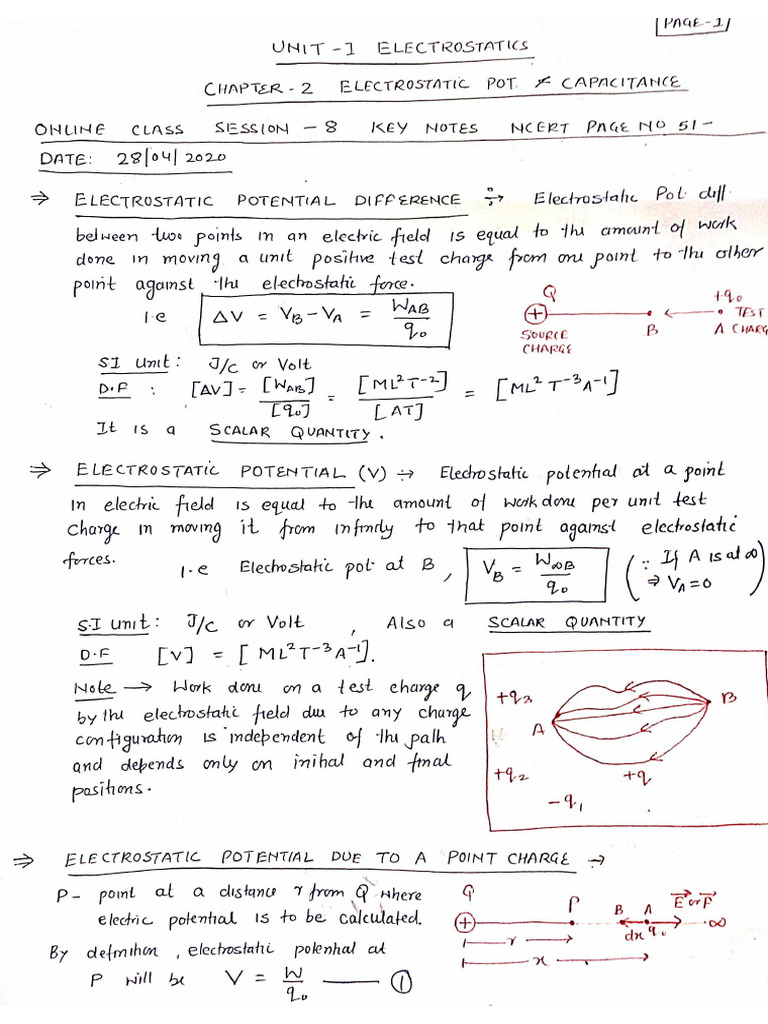 PAGE-1
UNIT-I ELECTROSTATICS
CHAPTER-2 ELECTROSTATIC POT. & CAPACITANCE
ONLINE CLASS SESSION - 8 KEY NOTES NCERT PAGE NO 51-
DATE: 28/04/2020
⇒ ELECTROSTATIC POTENTIAL DIFFERENCE :→ Electrostatic Pot. diff.
between two points in an electric field is equal to the amount of work
done in moving a unit positive test charge from one point to the other
point against the electrostatic force.
i.e ΔV = V_B - V_A = W_AB / q₀
Q +q₀
B A TEST CHARG
SOURCE CHARGE
SI Unit: J/C or Volt
D.F : [ΔV] = [W_AB] / [q₀] = [ML²T⁻²] / [AT] = [ML²T⁻³A⁻¹]
It is a SCALAR QUANTITY.
⇒ ELECTROSTATIC POTENTIAL (V) :→ Electrostatic potential at a point
in electric field is equal to the amount of work done per unit test
charge in moving it from infinity to that point against electrostatic
forces.
i.e Electrostatic pot at B, V_B = W_∞B / q₀ (∵ If A is at ∞ ⇒ V_A = 0)
S.I unit: J/C or Volt, Also a SCALAR QUANTITY
D.F [V] = [ML²T⁻³A⁻¹].
Note → Work done on a test charge q
by the electrostatic field due to any charge
configuration is independent of the path
and depends only on initial and final
positions.
+q₃ B
A
+q₂ +q
-q₁
⇒ ELECTROSTATIC POTENTIAL DUE TO A POINT CHARGE :→
P - point at a distance r from Q where
electric potential is to be calculated.
By definition, electrostatic potential at
P will be V = W / q₀ —— ①
Q P B A E⃗ or F⃗
dx q₀ ∞
r
x